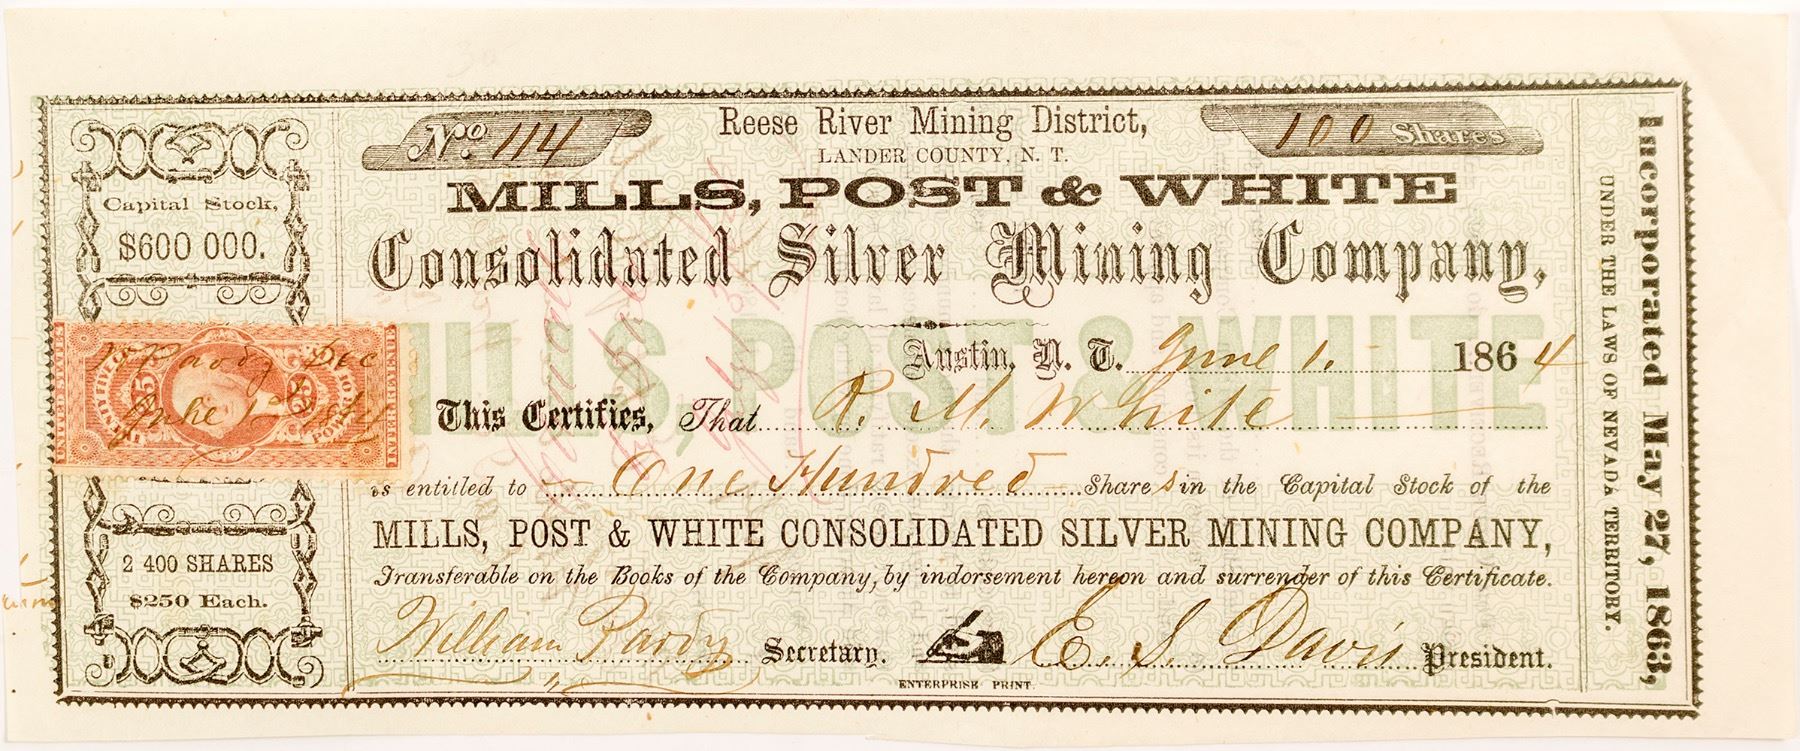 No. 114
Reese River Mining District,
LANDER COUNTY, N. T.
100 Shares
MILLS, POST & WHITE
Consolidated Silver Mining Company,
Capital Stock,
$600 000.
MILLS, POST & WHITE
Austin, N. T. June 1. 1864
This Certifies, That R. M. White
is entitled to One Hundred Shares in the Capital Stock of the
MILLS, POST & WHITE CONSOLIDATED SILVER MINING COMPANY,
Transferable on the Books of the Company, by indorsement hereon and surrender of this Certificate.
William Pardy Secretary. E. S. Davis President.
ENTERPRISE PRINT.
UNITED STATES
INTER. REVENUE
25 25
POWER
W Pardy Sec
June 1st
2 400 SHARES
$250 Each.
Incorporated May 27, 1863,
UNDER THE LAWS OF NEVADA TERRITORY.